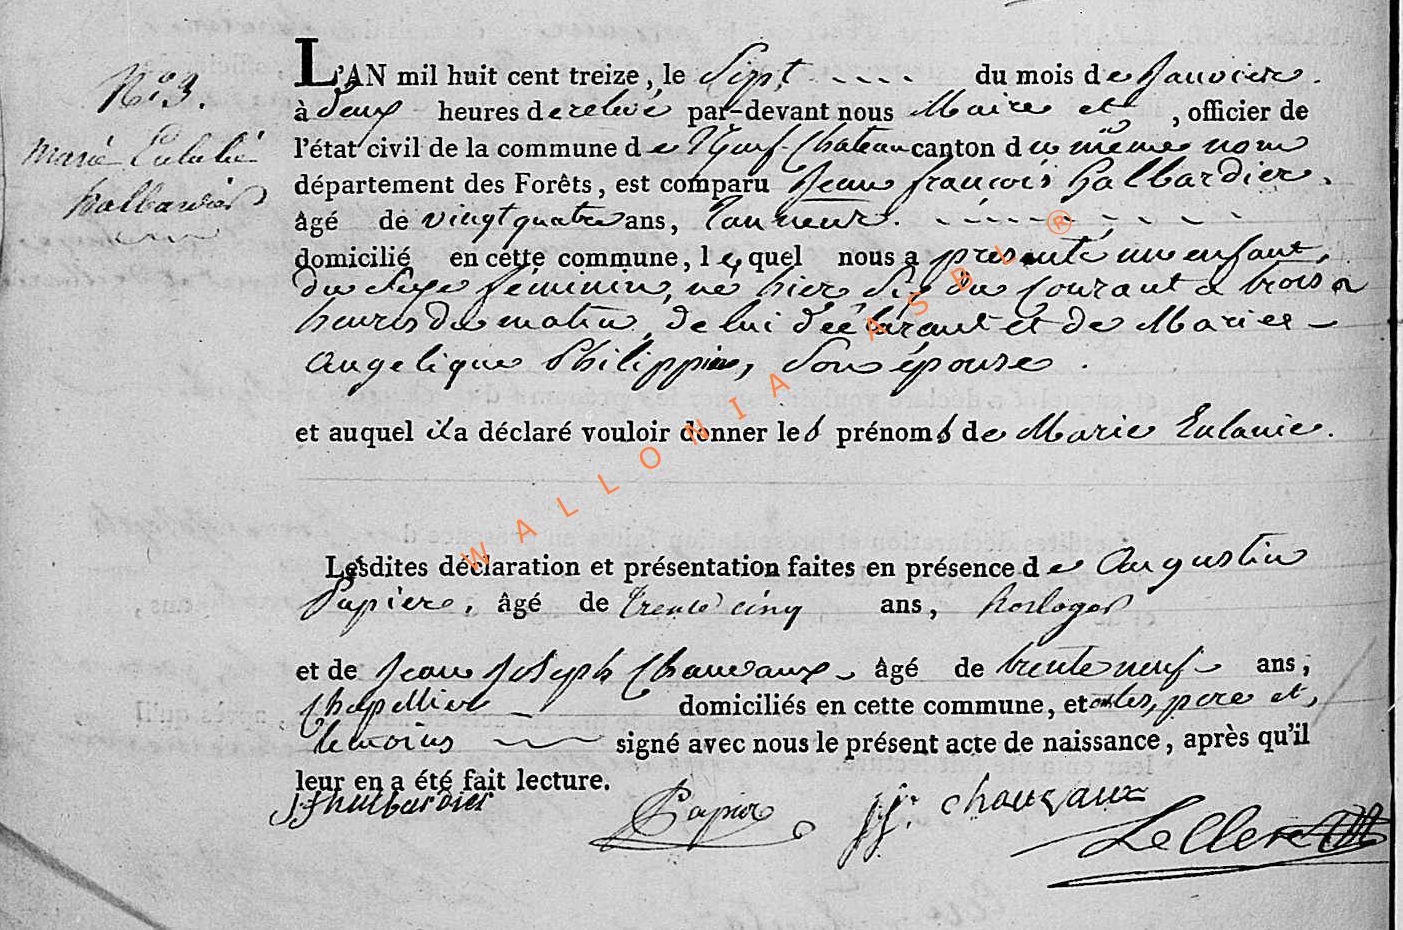 N.° 3.
Marie Eulalie
halbardier
L'AN mil huit cent treize, le Sept du mois de Janvier.
à deux heures de relevé par-devant nous Maire et, officier de
l'état civil de la commune de Neuf-Chateau canton du même nom
département des Forêts, est comparu Jean françois halbardier.
âgé de vingt quatre ans, tanneur.
domicilié en cette commune, lequel nous a présenté un enfant,
du Sexe féminin, né hier Six du Courant à trois
heures du matin, de lui déclarant et de Marie
angelique Philippin, Son épouse.
et auquel il a déclaré vouloir donner les prénoms de Marie Eulanie.
Lesdites déclaration et présentation faites en présence de Augustin
Papier, âgé de trente cinq ans, horloger
et de Jean Joseph Chauvaux âgé de trente neuf ans,
Chapellier domiciliés en cette commune, et ont les, pere et,
temoins signé avec nous le présent acte de naissance, après qu'il
leur en a été fait lecture.
J f halbardier Papier JJ. chauvaux
LeClerc
WALLONIA ASBL ®